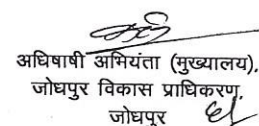 अधिषाषी अभियंता (मुख्यालय),
जोधपुर विकास प्राधिकरण,
जोधपुर